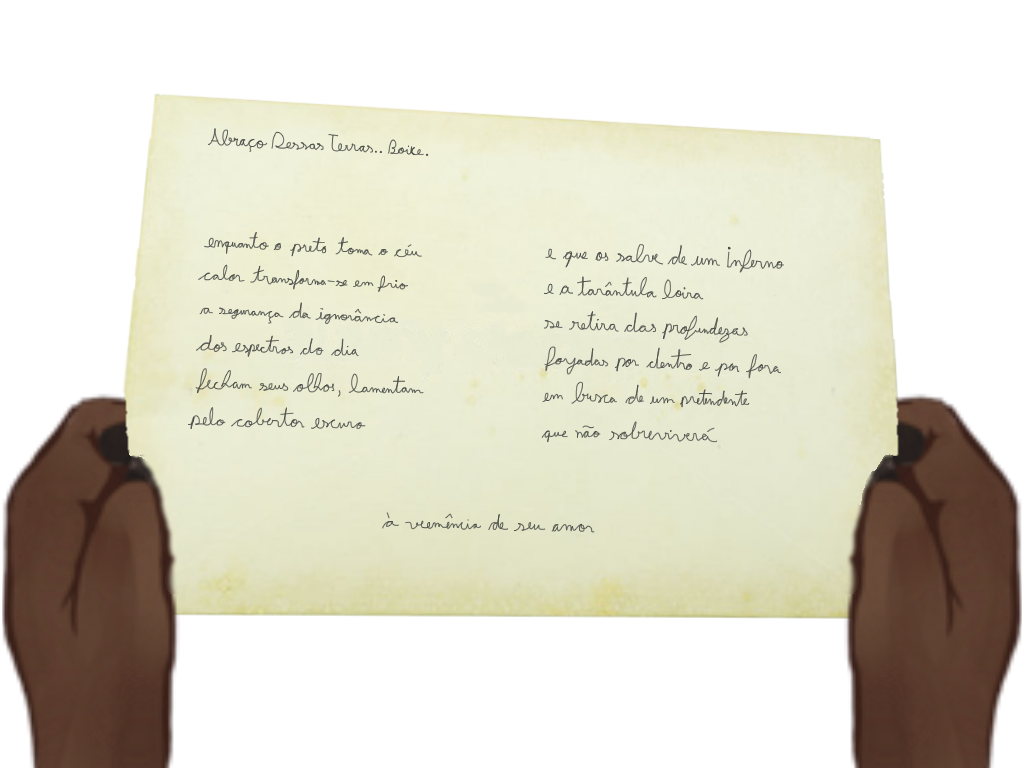 Abraço Dessas Terras.. Boixe.
enquanto o preto toma o céu
calor transforma-se em frio
a segurança da ignorância
dos espectros do dia
fecham seus olhos, lamentam
pelo cobertor escuro
e que os salve de um Inferno
e a tarântula loira
se retira das profundezas
forjadas por dentro e por fora
em busca de um pretendente
que não sobreviverá
à veemência de seu amor